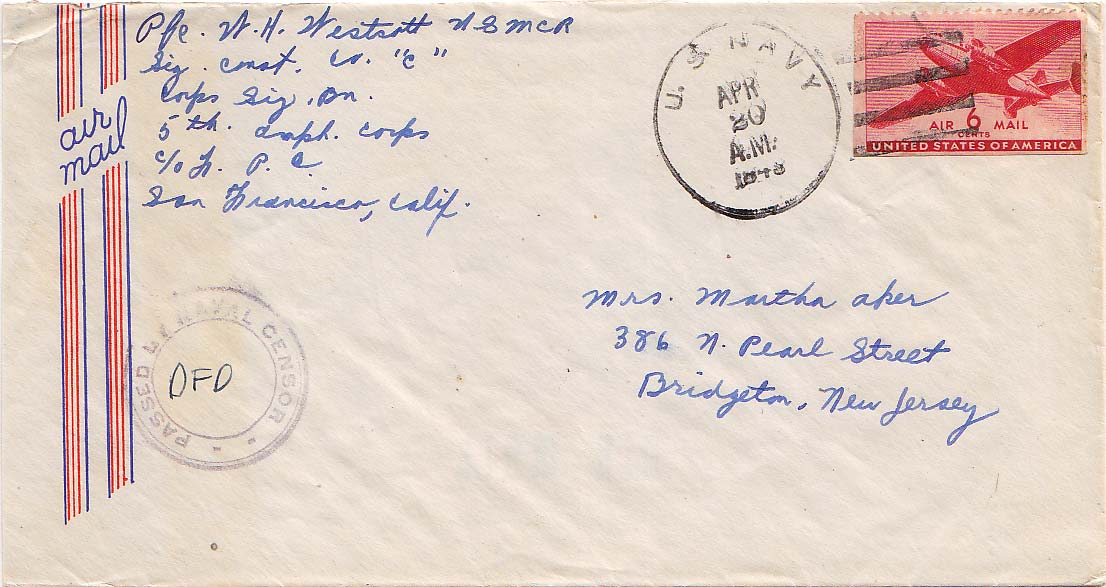 Pfc. W. H. Westcott USMCR
Sig. Const. Co. "C"
Corps Sig. Bn.
5th. Amph. Corps
c/o F. P. O.
San Francisco, Calif.
air
mail
U. S. NAVY
APR
20
A.M.
AIR 6 MAIL
CENTS
UNITED STATES OF AMERICA
Mrs. Martha Aker
386 N. Pearl Street
Bridgeton, New Jersey
PASSED BY NAVAL CENSOR
DFD